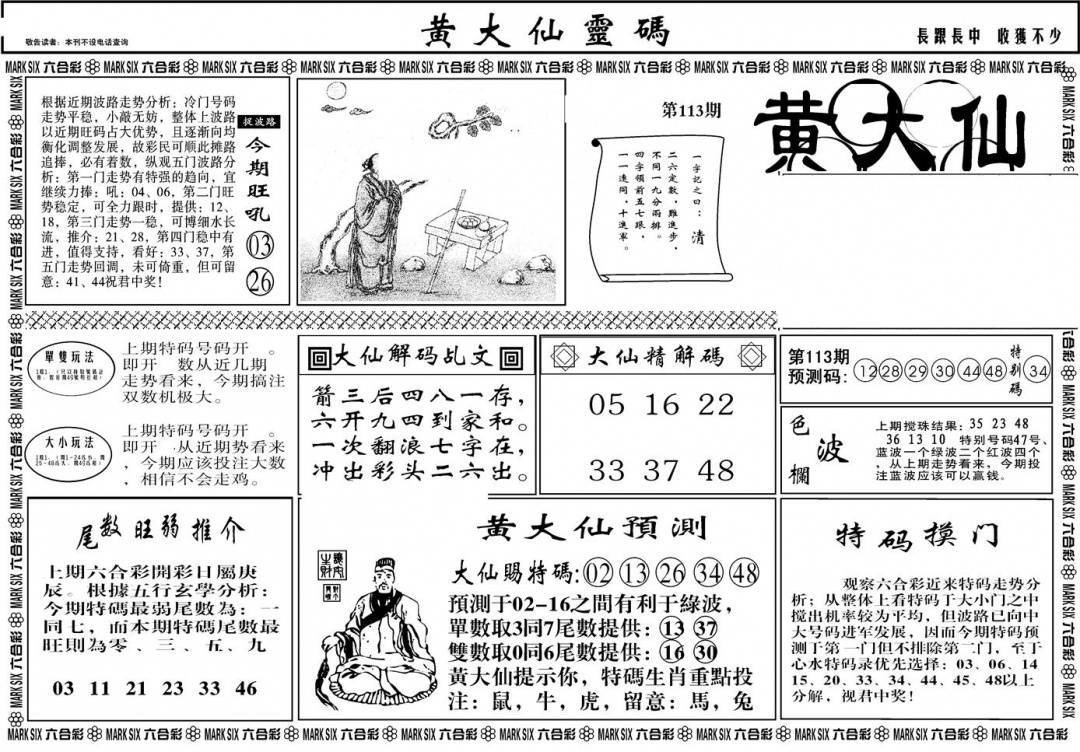 黄大仙靈碼
敬告读者：本刊不设电话查询
長跟長中 收獲不少
MARK SIX 六合彩 MARK SIX 六合彩 MARK SIX 六合彩 MARK SIX 六合彩 MARK SIX 六合彩 MARK SIX 六合彩 MARK SIX 六合彩 MARK SIX 六合彩 MARK SIX 六合彩 MARK SIX 六合彩 MARK SIX 六合彩
根据近期波路走势分析：冷门号码
走势平稳，小敲无妨，整体上波路
以近期旺码占大优势，且逐渐向均
衡化调整发展，故彩民可顺此摊路
追捧，必有着数，纵观五门波路分
析：第一门走势有特强的趋向，宜
继续力捧：吼：04、06，第二门旺
势稳定，可全力跟时，提供：12、
18，第三门走势一稳，可博细水长
流，推介：21、28，第四门稳中有
进，值得支持，看好：33、37，第
五门走势回调，未可倚重，但可留
意：41、44祝君中奖！
捉波路
今期旺吼
03
26
第113期
一字記之曰：清
二六定數，難進步，
不同一九分兩排。
四字領前五七跟，
一一連同，十進率。
黄大仙
單雙玩法
上期特码号码开 。
即开 数从近几期
走势看来，今期搞注
双数机极大。
大小玩法
上期特码号码开 。
即开 从近期势看来
，今期应该投注大数
，相信不会走鸡。
大仙解码乩文
箭三后四八一存，
六开九四到家和。
一次翻浪七字在，
冲出彩头二六出。
大仙精解碼
05 16 22
33 37 48
第113期
预测码：12 28 29 30 44 48
特别碼 34
色波欄
上期搅珠结果：35 23 48
36 13 10 特别号码47号、
蓝波一个绿波二个红波四个
，从上期走势看来，今期投
注蓝波应该可以赢钱。
尾数旺弱推介
上期六合彩開彩日屬庚
辰。根據五行玄學分析：
今期特碼最弱尾數為：一
同七，而本期特碼尾數最
旺則為零、三、五、九
03 11 21 23 33 46
黄大仙預測
大仙賜特碼：02 13 26 34 48
預測于02-16之間有利于綠波，
單數取3同7尾數提供：13 37
雙數取0同6尾數提供：16 30
黄大仙提示你，特碼生肖重點投
注：鼠，牛，虎，留意：馬，兔
特码摸门
观察六合彩近来特码走势分
析；从整体上看特码于大小门之中
搅出机率较为平均，但波路已向中
大号码进军发展，因而今期特码预
测于第一门但不排除第二门，至于
心水特码录优先选择：03、06、14
15、20、33、34、44、45、48以上
分解，视君中奖！
MARK SIX 六合彩 MARK SIX 六合彩 MARK SIX 六合彩 MARK SIX 六合彩 MARK SIX 六合彩 MARK SIX 六合彩 MARK SIX 六合彩 MARK SIX 六合彩 MARK SIX 六合彩 MARK SIX 六合彩 MARK SIX 六合彩